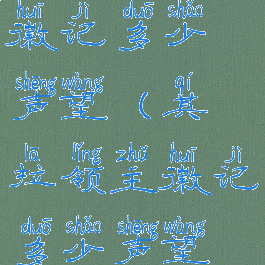 huī jì duō shǎo
徽记多少
shēng wàng qí
声望（其
lā lǐng zhǔ huī jì
拉领主徽记
duō shǎo shēng wàng
多少声望